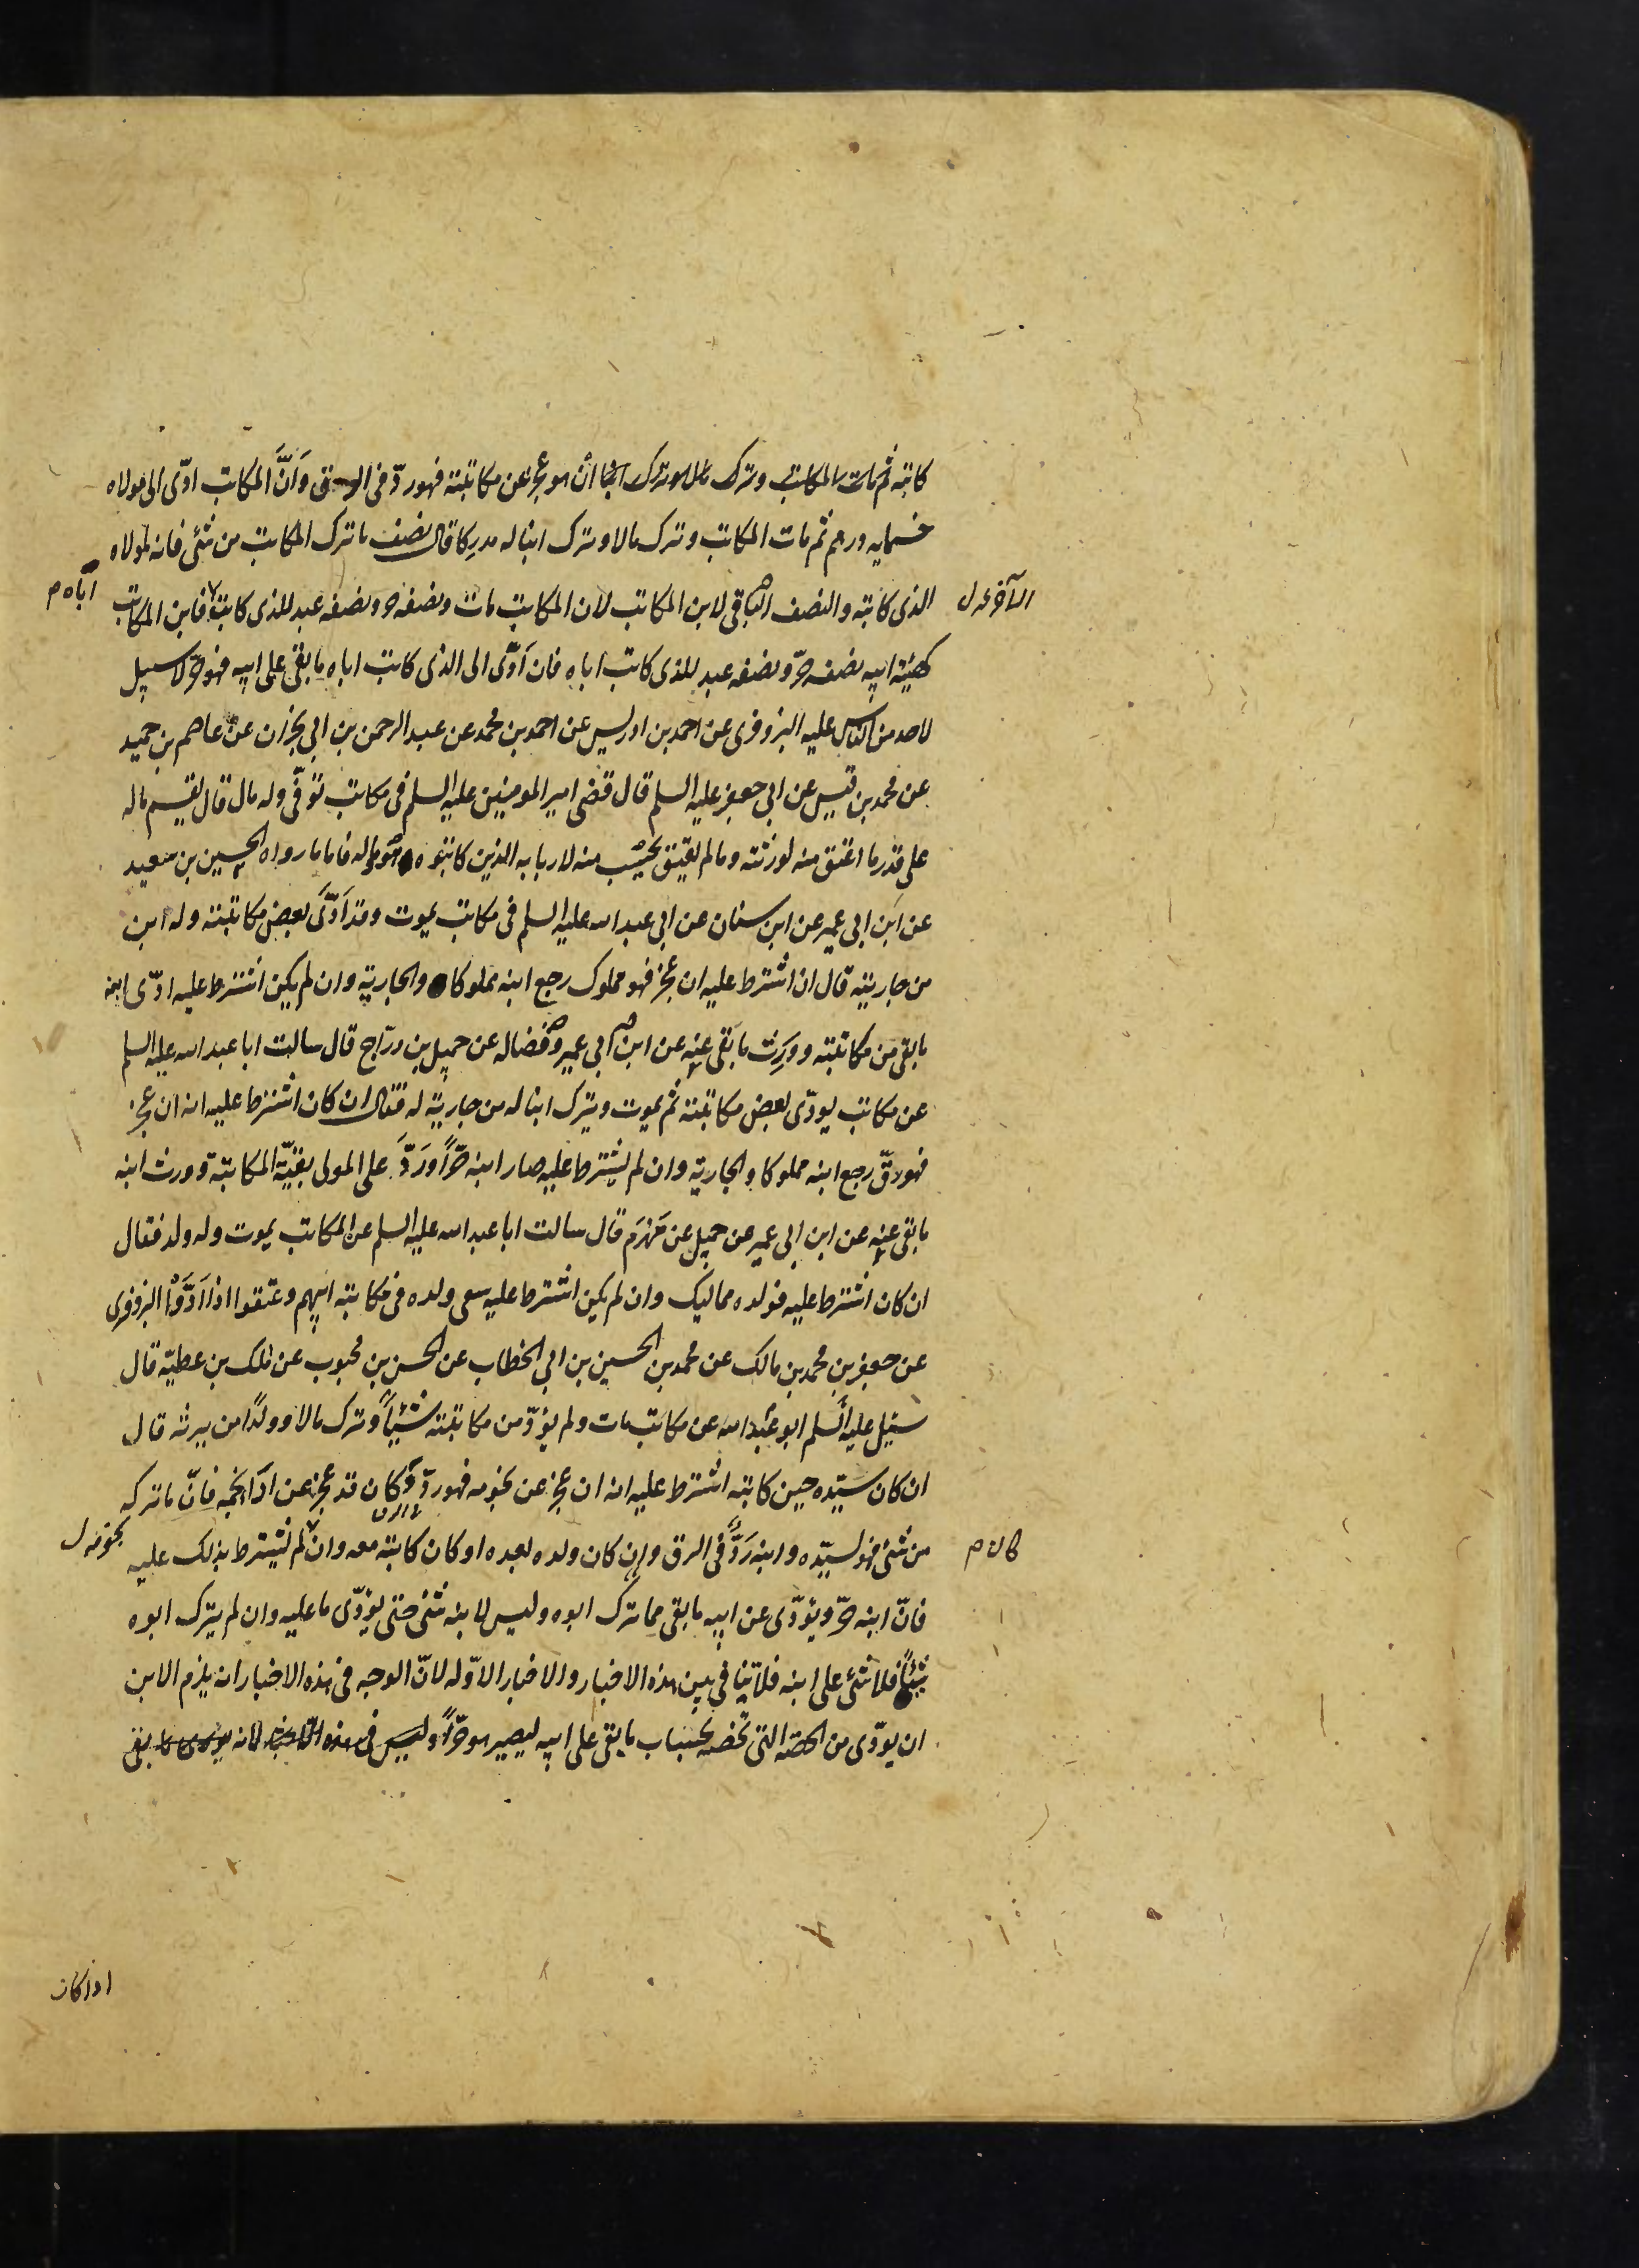 كاتبه ثم مات المكاتب وترك مالا وترك ابنا أن هو عجز عن مكاتبته فهو ردّ فى الرق وَانَّ المكاتب ادّى الى مولاه
خمسمايه درهم ثم مات المكاتب وترك مالا وترك ابنا له مدركا قال نصف ما ترك المكاتب من شئى فانه لمولاه
الذى كاتبه والنصف الباقى لابن المكاتب لان المكاتب مات ونصفه حر ونصفه عبد للذى كاتبه فابن المكاتب
اباه م
كهيئة ابيه نصفه حرّ ونصفه عبد للذى كاتب اباه فان اَدّى الى الذى كاتب اباه ما بقى على ابيه فهو حرّ لا سبيل
لاحد من الناس عليه البزوفرى عن احمد بن ادريس عن احمد بن محمد عن عبد الرحمن بن ابى نجران عن عاصم بن حميد
عن محمد بن قيس عن ابى جعفر عليه السلم قال قضى امير المومنين عليه السلم فى مكاتب توفّى وله مال قال يقسم ماله
على قدر ما اعتق منه لورثته وما لم يعتق يحتسب منه لاربابه الذين كاتبوه هو ماله فاما ما رواه الحسين بن سعيد
عن ابن ابى عمير عن ابن سنان عن ابى عبد الله عليه السلم فى مكاتب يموت وقد اَدّىَ بعض مكاتبته وله ابن
من جاريته قال ان اشترط عليه ان عجز فهو مملوك رجع ابنه مملوكا والجارية وان لم يكن اشترط عليه ادّى ابنه
ما بقى من مكاتبته وورث ما بقى عنه عن ابن ابى عمير وفضاله عن جميل بن درّاج قال سالت ابا عبد الله عليه السلم
عن مكاتب يودّى بعض مكاتبته ثم يموت ويترك ابنا له من جارية له فقال ان كان اشترط عليه انه ان عجز
فهو رقّ رجع ابنه مملوكا والجارية وان لم يشترط عليه صار ابنه حرّاً ورَدَّ على المولى بقيّة المكاتبة وورث ابنه
ما بقى عنه عن ابن ابى عمير عن جميل عن مَهْزَم قال سالت ابا عبد الله عليه السلم عن المكاتب يموت وله ولد فقال
ان كان اشترط عليه فولده مماليك وان لم يكن اشترط عليه سعى ولده فى مكاتبة ابيهم وعتقوا اذا اَدَّوْا البزوفرى
عن جعفر بن محمد بن مالك عن محمد بن الحسين بن ابى الخطاب عن الحسن بن محبوب عن ملك بن عطيّة قال
سئيل عليه السلم ابو عبد الله عن مكاتب مات ولم يؤدّ من مكاتبته شيئاً وترك مالا وولدًا من يرثه قال
ان كان سيّده حين كاتبه اشترط عليه انه ان عجز عن نجومه فهو ردّ وكان قد عجز عن ادآ نجمه فانّ ما تركه
من شئى فهو لسيّده وابنه رَدٌّ فى الرق وان كان ولده بعده او كان كاتبه معه وان لم يشترط بذلك عليه
نجومه ل
فانّ ابنه حرّ ويؤدّى عن ابيه ما بقى مما ترك ابوه وليس لابنه شئى حتى يؤدّى ما عليه وان لم يترك ابوه
شيئاً فلا شئى على ابنه فلا تنافى بين هذه الاخبار والاخبار الاوّله لانّ الوجه فى هذه الاخبار انه يلزم الابن
ان يودّى من الحصّه التى تخصه بحساب ما بقى على ابيه ليصير هو حرّاً وليس فى هذه الاخبار انه يودى ما بقى
اذا كان